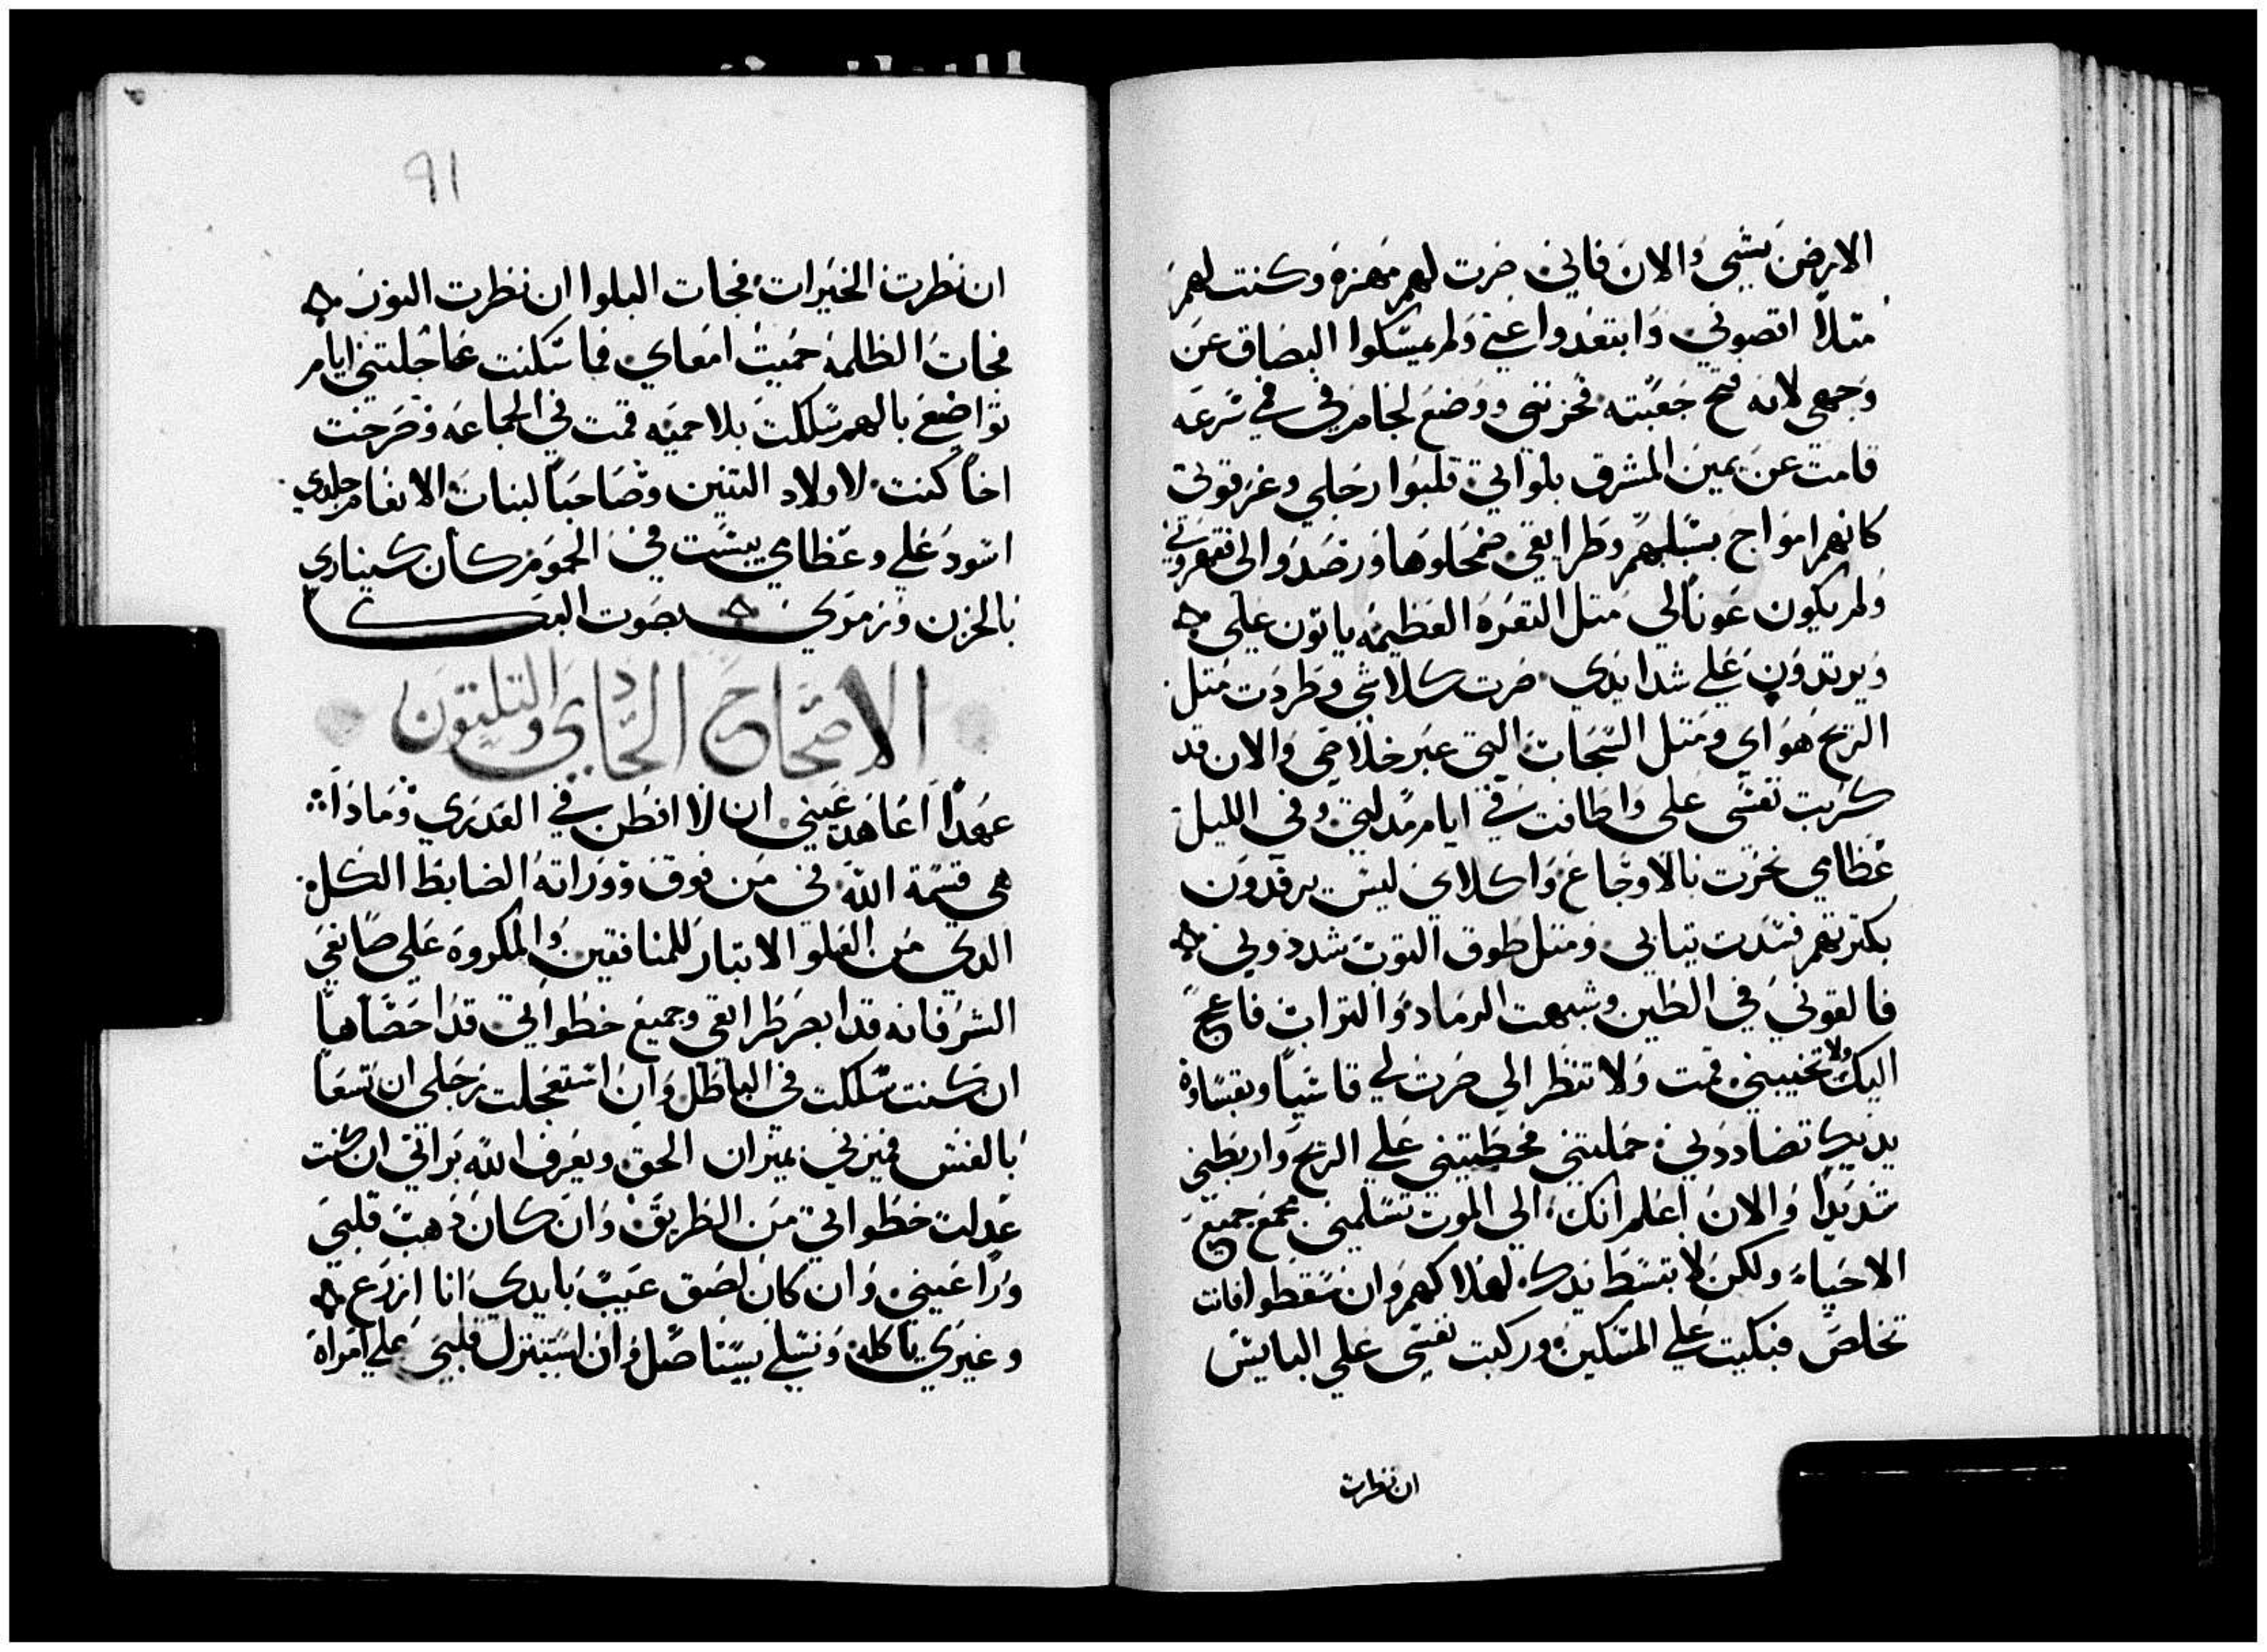 الارض بشي والان فاني صرت لهم مهزة وكنت لهم
متلاً اتصوني وابتعدوا عني ولم يمسكوا البصاق عن
وجهي لانه فتح جعبته فحزنني ووضع لجام في في سرعه
قامت عن يمين المشرق بلواتي قلبوا رجلي وغرقوني
كانهم امواج بسبلهم وطرايقي ضمحلوها ورصدوا الي فقهروني
ولم يكون عوناً لي متل التغرة العظيمه ياتون علي
ويرتدون علي شدايدي صرت كلاشي وطردت متل
الريح هواي ومتل السحاب التي عبر خلاصي والان قد
كربت نفسي علي واطافت في ايام مدلتي وفي الليل
عظامي نخرت بالاوجاع واكلاي ليس يرقدون
بكترتهم فسدت تيابي ومتل طوق التوب شددوني
فالقوني في الطين وشبهت الرماد والتراب فاعج
اليك ولا تجيبني قمت ولا تنظر الي صرت لي قاسياً وبقساوة
يديك تضاددني حملتني فحطيتني علي الريح واربطني
شديداً والان اعلم انك الي الموت تسلمني مجمع جميع
الاحياء ولكن لا تبسط يدك لهلاكهم وان سقطوا فانت
تخلص فبكيت علي المسكين وركبت نفسي علي البايس
ان نظرت
91
ان نظرت الخيرات فجات البلوا ان نظرت النور
فجات الظلمه حميت امعاي فما سكنت عاجلتني ايام
تواضع بالهم سلكت بلا حميه قمت في الجماعه وصرخت
اخاً كنت لاولاد التنين وصاحباً لبنات الانعام جلدي
اسود علي وعظامي يبست في الحموم كان كيناري
بالحزن وزموري بصوت البكا
الاصحاح الحادي والتلتون
عهداً اعاهد عيني ان لا افطن في العدري وماذا
هي قسمة الله في من فوق ووراته الضابط الكل
الدي من العلو الاتبار للمنافقين والمكروه علي صانعي
الشر فانه قد ابصر طرايقي وجميع خطواتي قد احصاها
ان كنت سلكت في الباطل وان استعجلت رجلي ان تسعا
بالغش فميزني بميزان الحق ويعرف الله براتي ان كنت
عدلت خطواتي من الطريق وان كان ذهب قلبي
ورا عيني وان كان لصق عيب بايدي انا ازرع
وغيري ياكله ونسلي يستاصل وان استنزل قلبي علي امراة